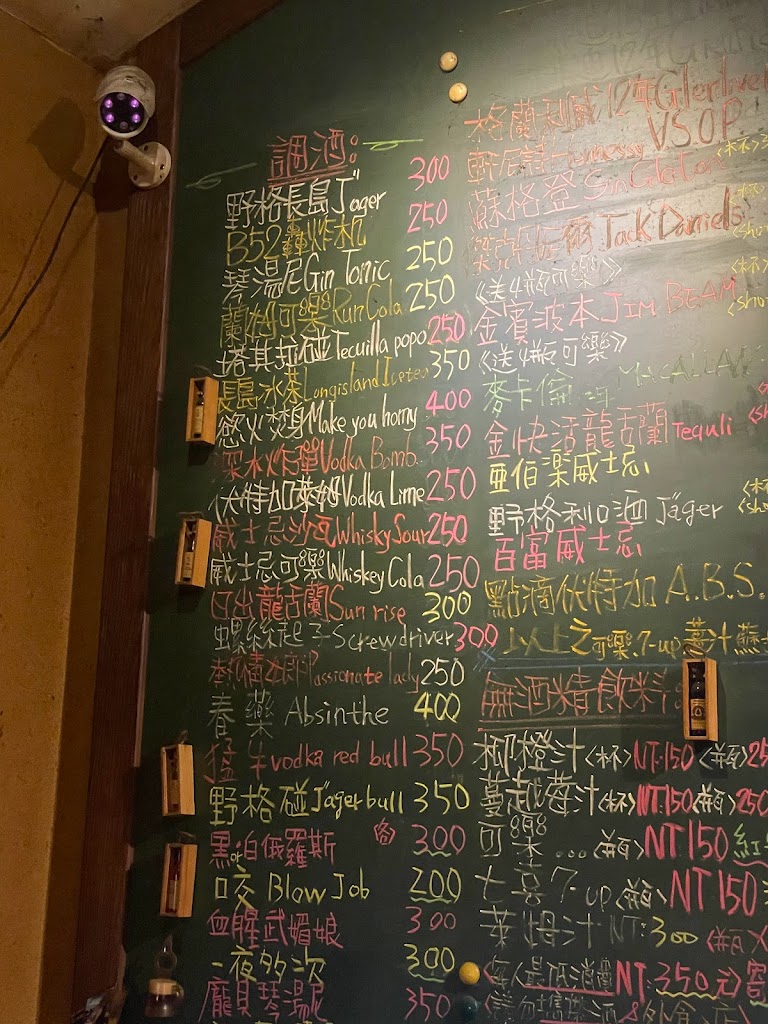 調酒:
野格長島 Jäger 300
B52轟炸机 250
琴湯尼Gin Tonic 250
蘭姆可樂Run Cola 250
塔其拉碰Tecuilla popo 250
長島冰茶Longisland Icetea 350
慾火焚身Make you horny 400
深水炸彈Vodka Bomb 350
伏特加萊姆Vodka Lime 250
威士忌沙瓦Whisky Sour 250
威士忌可樂Whiskey Cola 250
日出龍舌蘭Sun rise 300
螺絲起子Screwdriver 300
熱情女郎Passionate lady 250
春藥 Absinthe 400
猛牛vodka red bull 350
野格碰Jägerbull 350
黑or白俄羅斯 各 300
咬 Blow Job 200
血腥武媚娘 300
一夜多次 300
龐貝琴湯尼 350
格蘭利威12年Glenlivet
VSOP
Hennessy
蘇格登
傑克 Jack Daniels
《送4瓶可樂》
金賓波本JIM BEAM
《送4瓶可樂》
麥卡倫 MACALLAN
金快活龍舌蘭Tequli
亞伯樂威士忌
野格利口酒 Jäger
百富威士忌
點滴伏特加 A.B.S.
以上之可樂.7-up 薑汁
無酒精飲料:
柳橙汁<杯>NT:150 <瓶>
蔓越莓汁<杯>NT:150<瓶>250
可樂...<瓶>NT150
七喜7-UP<瓶>NT150
萊姆汁NT:300<瓶>
每人最低消費NT:350元
請勿攜帶酒&外食